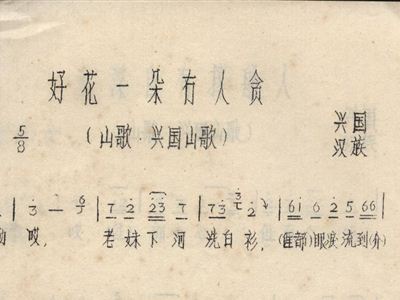 好花一朵冇人贪
5/8 (山歌·兴国山歌) 兴国
汉族
| 3 — 6/5 | 7 2 23 7 | 73 3/2 2 | 61 6 2 5 66
哎, 若妹下河 洗白衫, (𠊎都)眼泪流到(介)